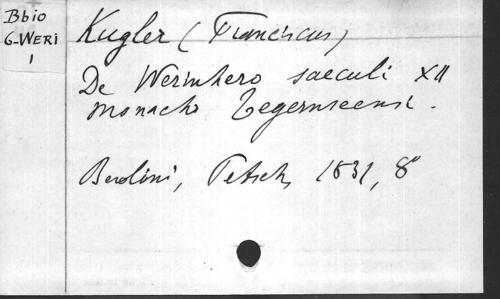 Bbio
G.WERI
1
Kugler (Franciscus)
De Werinhero saeculi XII
monacho Tegernseensi.
Berolini, Petsch, 1831, 8°